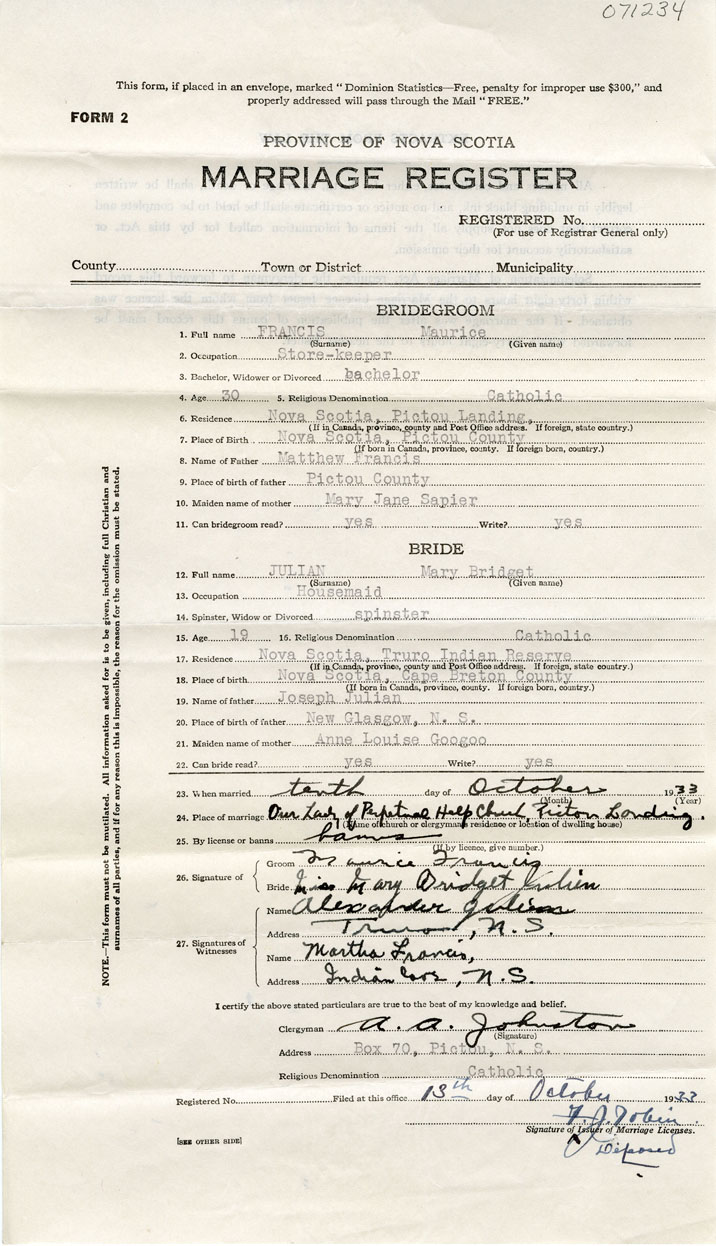 071234
This form, if placed in an envelope, marked "Dominion Statistics—Free, penalty for improper use $300," and
properly addressed will pass through the Mail "FREE."
FORM 2
PROVINCE OF NOVA SCOTIA
MARRIAGE REGISTER
REGISTERED No.
(For use of Registrar General only)
County Town or District Municipality
BRIDEGROOM
1. Full name FRANCIS Maurice
(Surname) (Given name)
2. Occupation Store-keeper
3. Bachelor, Widower or Divorced bachelor
4. Age 30 5. Religious Denomination Catholic
6. Residence Nova Scotia, Pictou Landing,
(If in Canada, province, county and Post Office address. If foreign, state country.)
7. Place of Birth Nova Scotia, Pictou County
(If born in Canada, province, county. If foreign born, country.)
8. Name of Father Matthew Francis
9. Place of birth of father Pictou County
10. Maiden name of mother Mary Jane Sapier
11. Can bridegroom read? yes Write? yes
BRIDE
12. Full name JULIAN Mary Bridget
(Surname) (Given name)
13. Occupation Housemaid
14. Spinster, Widow or Divorced spinster
15. Age 19 16. Religious Denomination Catholic
17. Residence Nova Scotia, Truro Indian Reserve
(If in Canada, province, county and Post Office address. If foreign, state country.)
18. Place of birth Nova Scotia, Cape Breton County
(If born in Canada, province, county. If foreign born, country.)
19. Name of father Joseph Julian
20. Place of birth of father New Glasgow, N. S.
21. Maiden name of mother Anne Louise Googoo
22. Can bride read? yes Write? yes
23. When married tenth day of October 1933
(Month) (Year)
24. Place of marriage Our Lady of Perpetual Help Church, Pictou Landing.
(Name of church or clergyman's residence or location of dwelling house)
25. By license or banns banns
(If by licence, give number.)
26. Signature of
Groom Maurice Francis
Bride Miss Mary Bridget Julien
27. Signatures of Witnesses
Name Alexander Julian
Address Truro, N.S.
Name Martha Francis,
Address Indian Cove, N.S.
I certify the above stated particulars are true to the best of my knowledge and belief.
Clergyman A. A. Johnston
(Signature)
Address Box 70, Pictou, N. S.
Religious Denomination Catholic
Registered No. Filed at this office 13th day of October 1933
Tobin
Signature of Issuer of Marriage Licenses.
Deposed
[SEE OTHER SIDE]
NOTE.—This form must not be mutilated. All information asked for is to be given, including full Christian and
surnames of all parties, and if for any reason this is impossible, the reason for the omission must be stated.